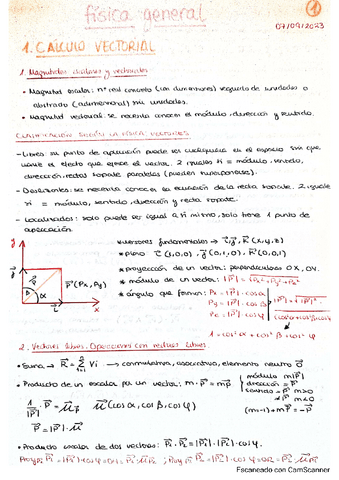 física general
1
07/09/2023
1. CALCULO VECTORIAL
1. Magnitudes escalares y vectoriales
• Magnitud escalar: nº real concreto (con dimensiones) seguido de unidades o
abstracto (adimensional) sin unidades.
• Magnitud vectorial: se necesita conocer el módulo, dirección y sentido.
CLASIFICACIÓN SEGÚN LA FÍSICA VECTORES
- Libres: su punto de aplicación puede ser cualquiera en el espacio sin que
varíe el efecto que ejerce el vector. 2 iguales si = módulo, sentido,
dirección, rectas soporte paralelas (pueden superponerse).
- Deslizantes: se necesita conocer la ecuación de la recta soporte. 2 iguales
si = módulo, sentido, dirección y recta soporte.
- Localizados: solo puede ser igual a si mismo, solo tiene 1 punto de
aplicación.
y
x
α
P⃗ (Px, Py)
*versores fundamentales → (x, y, z)
*plano: (1,0,0), (0,1,0), (0,0,1)
*proyección de un vector: perpendiculares OX, OY.
* módulo de un vector: |P⃗| = √Px² + Py² + Pz²
* ángulo que forman: Px = |P⃗| · cos α
Py = |P⃗| · cos β
Pz = |P⃗| · cos φ
1 = cos² α + cos² β + cos² φ
2. Vectores libres. Operaciones con vectores libres.
• Suma → R⃗ = Σ Vi → conmutativa, asociativa, elemento neutro 0⃗
• Producto de un escalar por un vector: m · P⃗ = mP⃗
módulo m|P⃗|
dirección = P⃗
sentido = P⃗ m>0
≠ P⃗ m<0
(m=-1) mP⃗ = -P⃗
1/|P⃗| · P⃗ = μ⃗ μ⃗ (cos α, cos β, cos φ)
P⃗ = |P⃗| · μ⃗
• Producto escalar de dos vectores: P⃗₁ · P⃗₂ = |P⃗₁| · |P⃗₂| · cos φ.
Escaneado con CamScanner